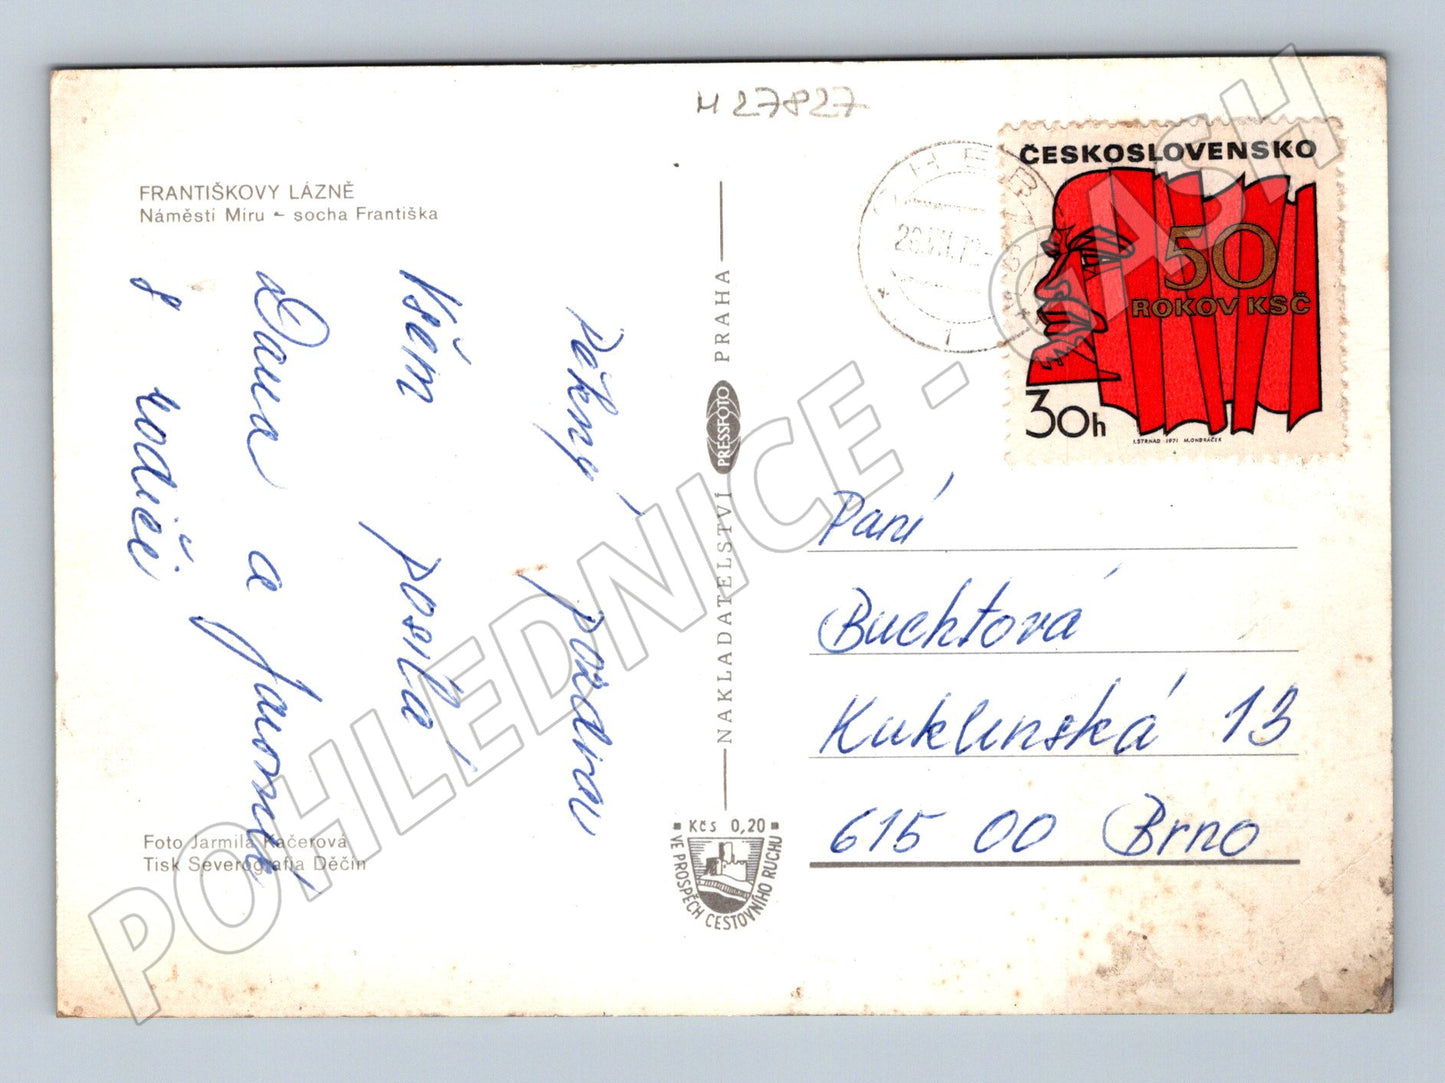 H 27827
FRANTIŠKOVY LÁZNĚ
Náměstí Míru - socha Františka
Pěkný pozdrav
Všem posílá
Dana a Jaromír
s rodiči
Foto Jarmila Kačerová
Tisk Severografia Děčín
NAKLADATELSTVÍ PRESSFOTO PRAHA
Kčs 0,20
VE PROSPĚCH CESTOVNÍHO RUCHU
CHEB 1
ČESKOSLOVENSKO
50
ROKOV KSČ
30h
I. STRNAD 1971 M. ONDRÁČEK
Paní
Buchtová
Kuklenská 13
615 00 Brno
POHLEDNICE - CASH